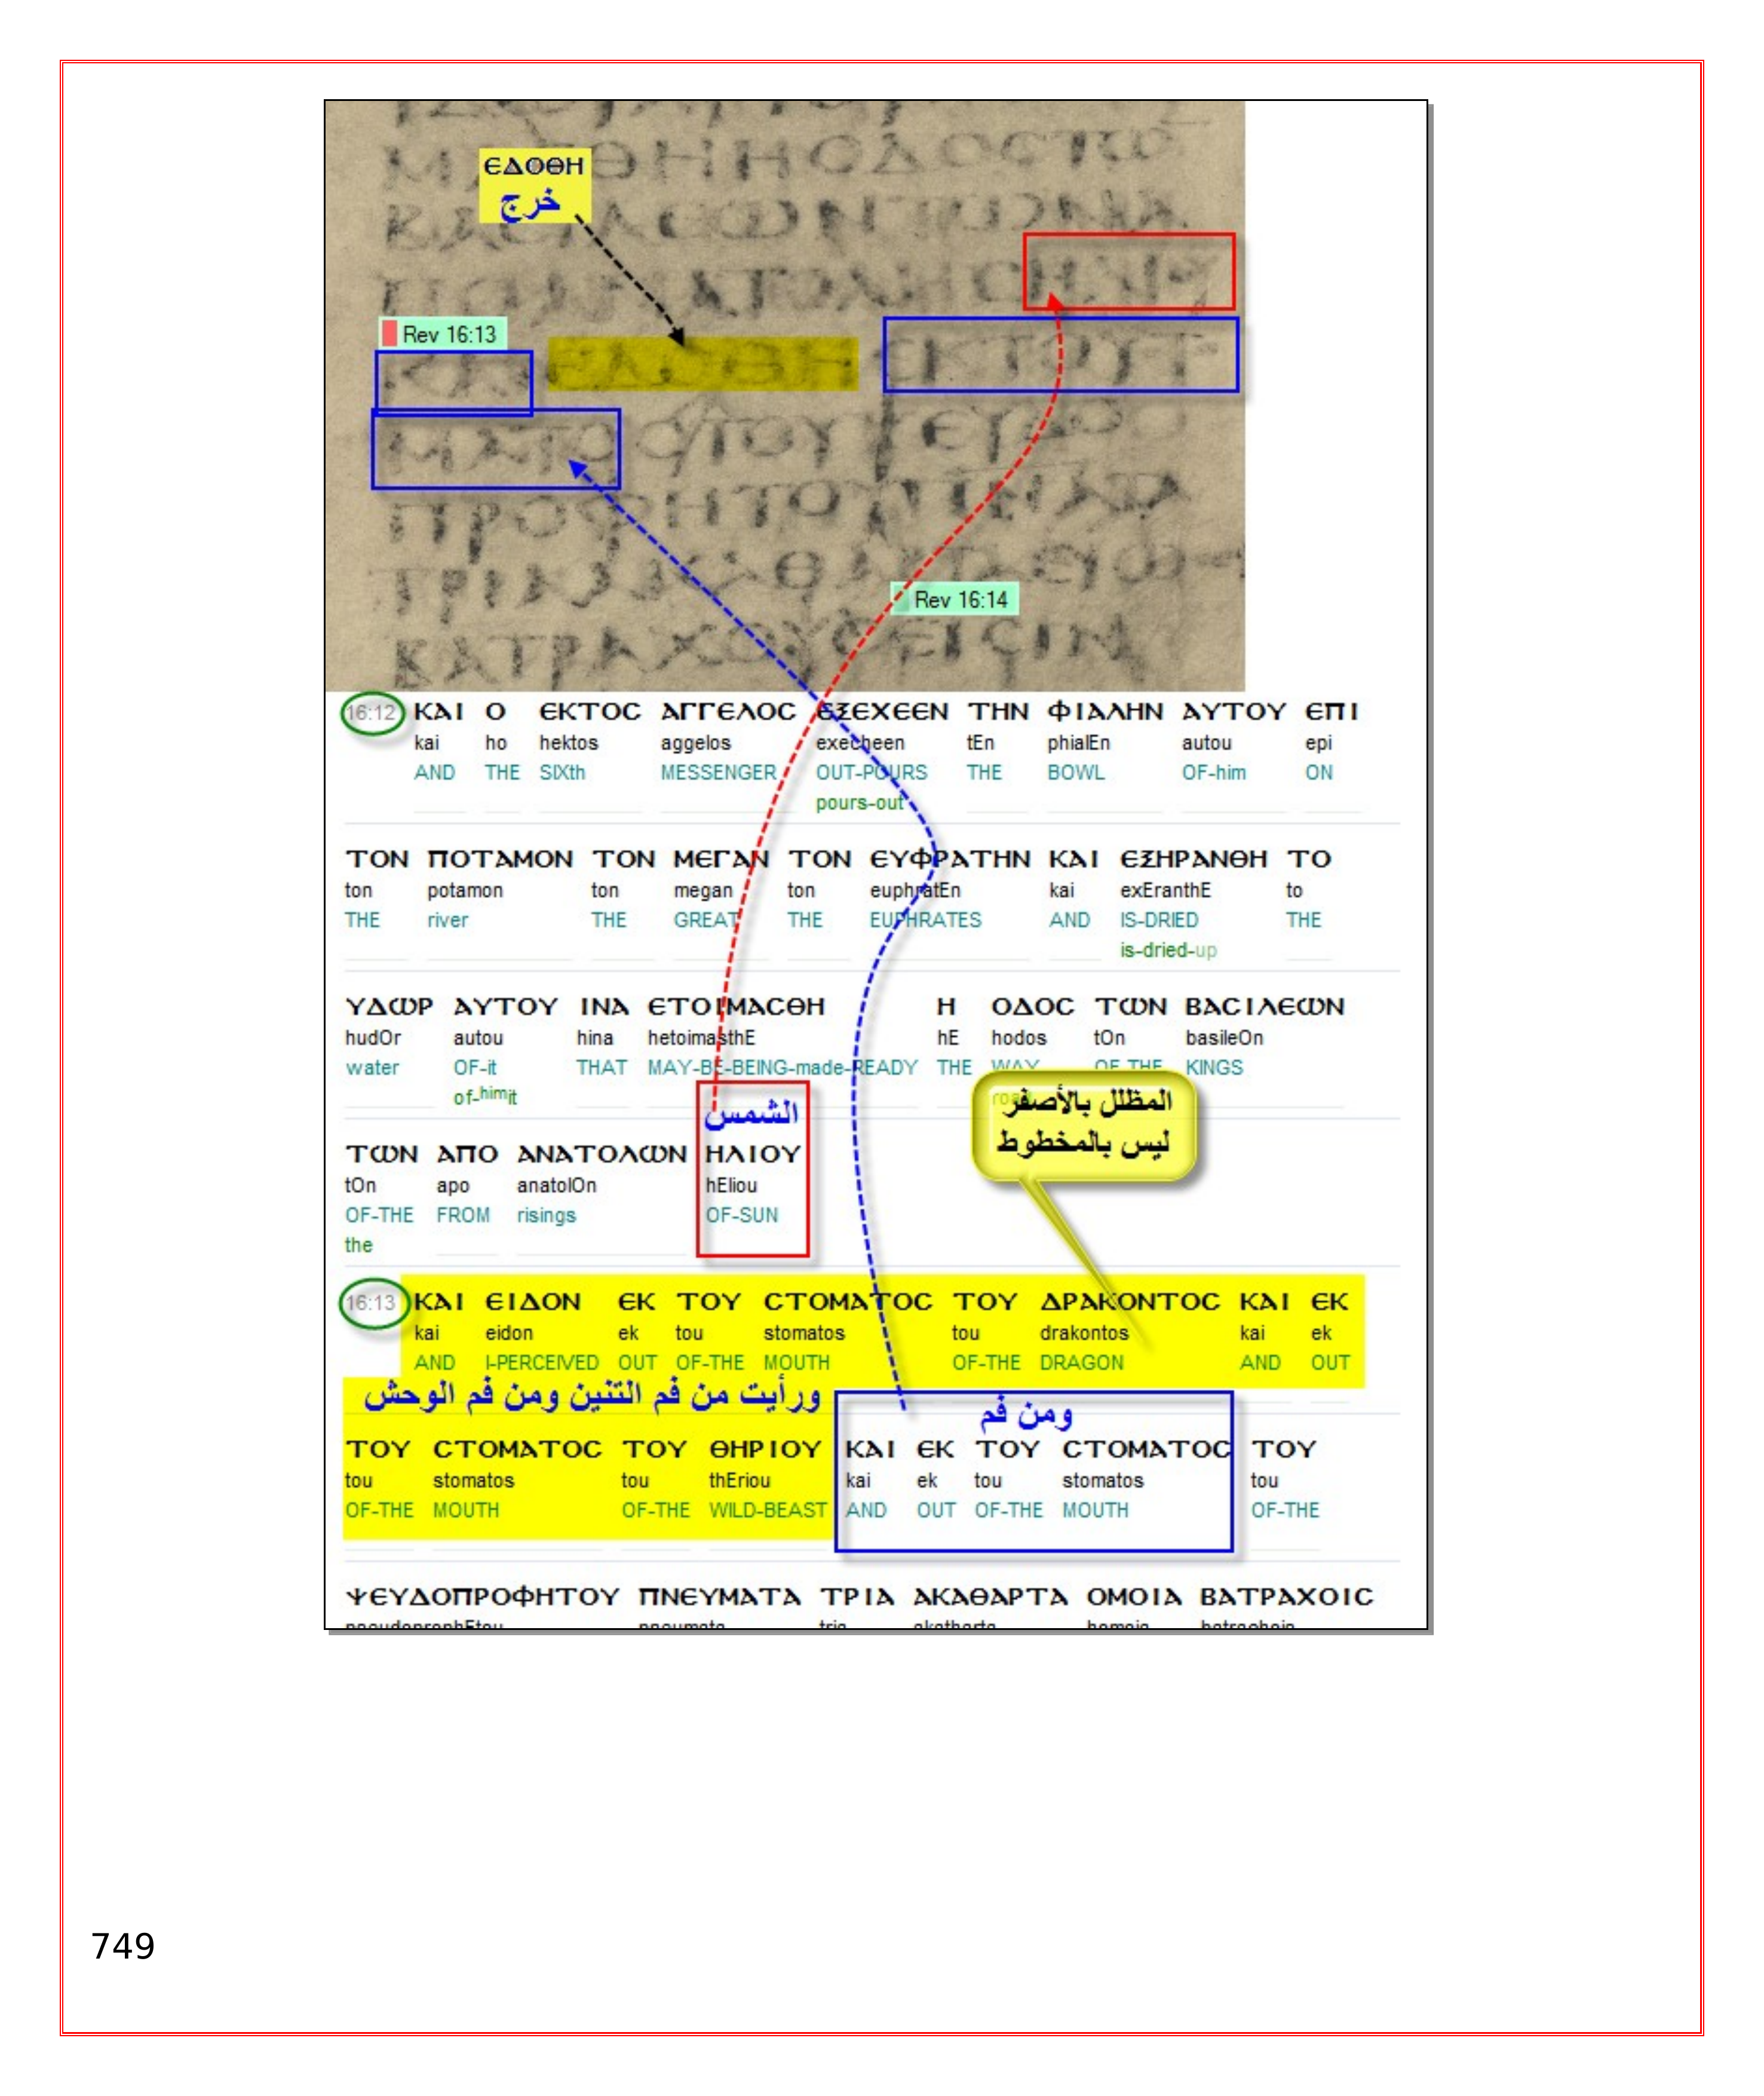 ΕΔΟΘΗ
خرج
Rev 16:13
Rev 16:14
ΚΑΤΡΑΧΟΥϹΕΙϹΙΝ
16:12 ΚΑΙ Ο ΕΚΤΟϹ ΑΓΓΕΛΟϹ ΕΞΕΧΕΕΝ ΤΗΝ ΦΙΑΛΗΝ ΑΥΤΟΥ ΕΠΙ
kai ho hektos aggelos execheen tEn phialEn autou epi
AND THE SIXth MESSENGER OUT-POURS THE BOWL OF-him ON
pours-out
ΤΟΝ ΠΟΤΑΜΟΝ ΤΟΝ ΜΕΓΑΝ ΤΟΝ ΕΥΦΡΑΤΗΝ ΚΑΙ ΕΞΗΡΑΝΘΗ ΤΟ
ton potamon ton megan ton euphratEn kai exEranthE to
THE river THE GREAT THE EUPHRATES AND IS-DRIED THE
is-dried-up
ΥΔΩΡ ΑΥΤΟΥ ΙΝΑ ΕΤΟΙΜΑϹΘΗ Η ΟΔΟϹ ΤΩΝ ΒΑϹΙΛΕΩΝ
hudOr autou hina hetoimasthE hE hodos tOn basileOn
water OF-it THAT MAY-BE-BEING-made-READY THE WAY OF-THE KINGS
of-himit road
المظلل بالأصفر
ليس بالمخطوط
الشمس
ΤΩΝ ΑΠΟ ΑΝΑΤΟΛΩΝ ΗΛΙΟΥ
tOn apo anatolOn hEliou
OF-THE FROM risings OF-SUN
the
16:13 ΚΑΙ ΕΙΔΟΝ ΕΚ ΤΟΥ ϹΤΟΜΑΤΟϹ ΤΟΥ ΔΡΑΚΟΝΤΟϹ ΚΑΙ ΕΚ
kai eidon ek tou stomatos tou drakontos kai ek
AND I-PERCEIVED OUT OF-THE MOUTH OF-THE DRAGON AND OUT
ورأيت من فم التنين ومن فم الوحش
ومن فم
ΤΟΥ ϹΤΟΜΑΤΟϹ ΤΟΥ ΘΗΡΙΟΥ ΚΑΙ ΕΚ ΤΟΥ ϹΤΟΜΑΤΟϹ ΤΟΥ
tou stomatos tou thEriou kai ek tou stomatos tou
OF-THE MOUTH OF-THE WILD-BEAST AND OUT OF-THE MOUTH OF-THE
ΨΕΥΔΟΠΡΟΦΗΤΟΥ ΠΝΕΥΜΑΤΑ ΤΡΙΑ ΑΚΑΘΑΡΤΑ ΟΜΟΙΑ ΒΑΤΡΑΧΟΙϹ
749